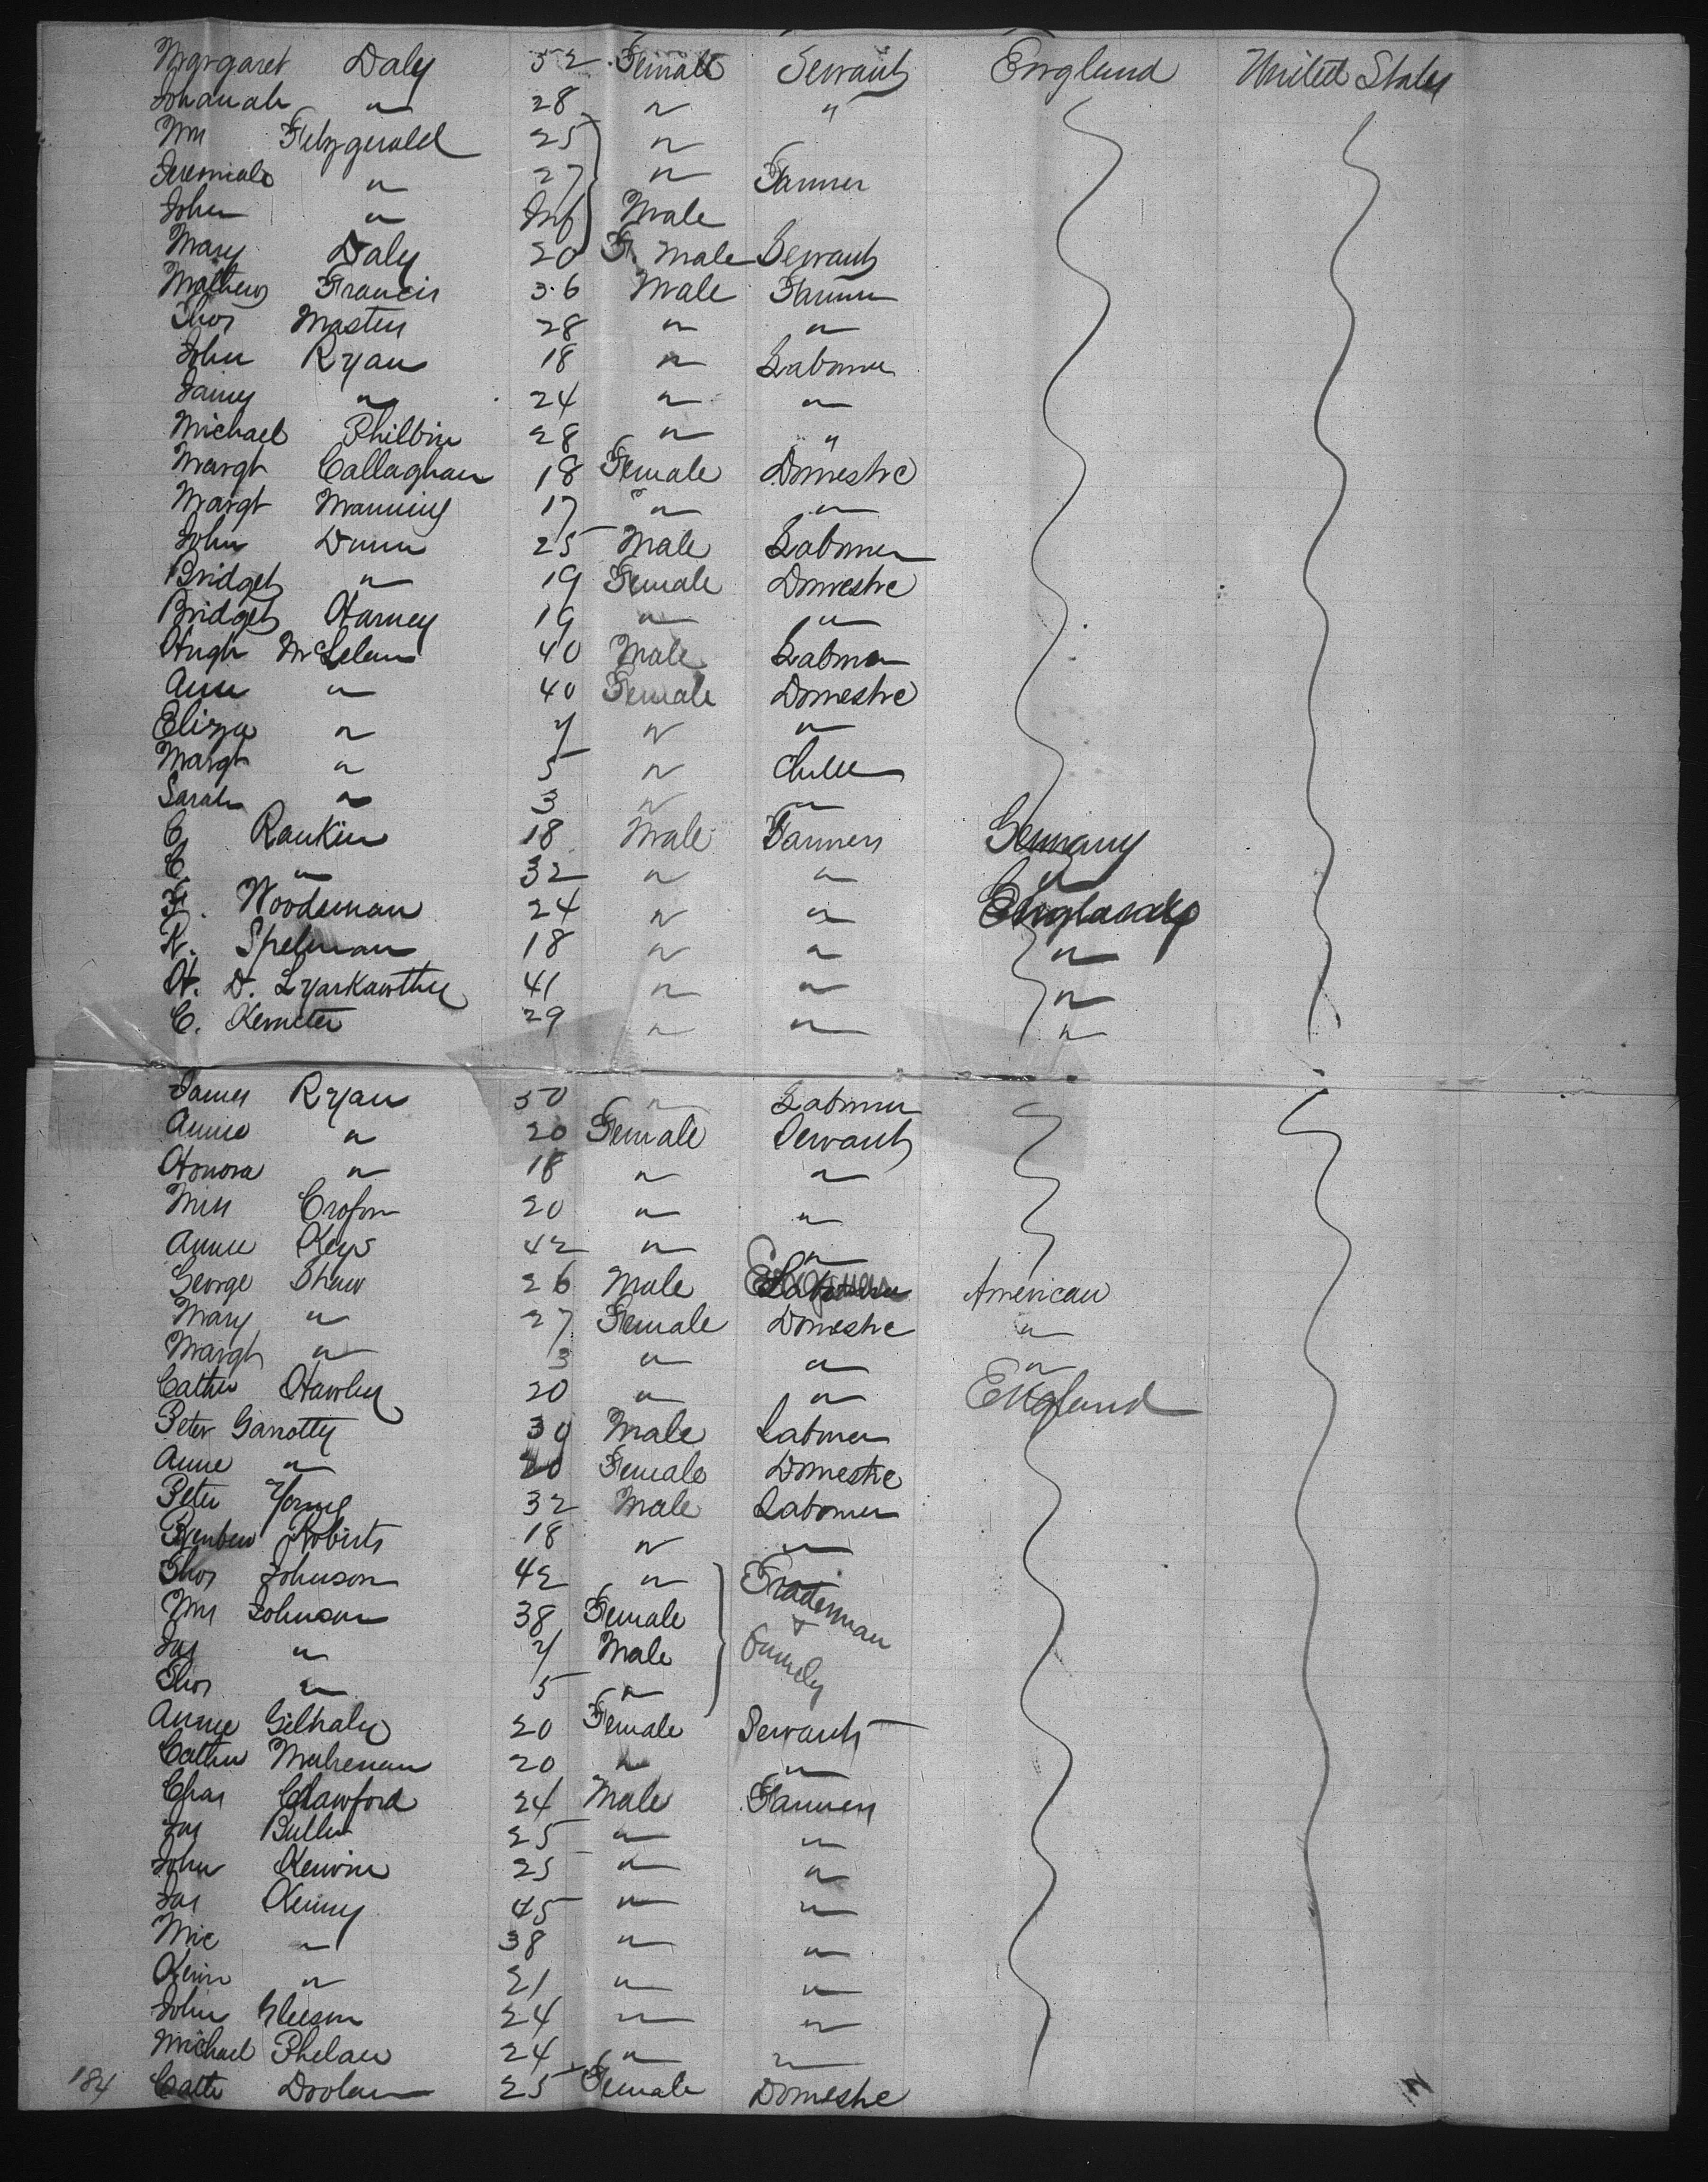 Margaret Daly 32 Female Servant England United States
Johanah " 28 " "
Wm Fitzgerald 25 "
Jeremiah " 27 " Farmer
John " Inf Male
Mary Daly 20 F. male Servant
Mathew Francis 36 Male Farmer
Thos Masten 28 " "
John Ryan 18 " Labourer
James " 24 " "
Michael Philbin 28 " "
Margt Callaghan 18 Female Domestic
Margt Manning 17 " "
John Dunn 25 Male Labourer
Bridget " 19 Female Domestic
Bridget Harney 19 " "
Hugh 40 Male Labourer
Ann " 40 Female Domestic
Eliza " 7 " "
Margt " 5 " Child
Sarah " 3 " "
C. Rankin 18 Male Farmer Germany
C. " 32 " " "
F. Woodsman 24 " " England
R. Spelman 18 " " "
H. D. 41 " " "
C. 29 " " "
James Ryan 50 " Labourer
Annie " 20 Female Servant
Honora " 18 " "
Miss Crofon 20 " "
Annie Keys 42 " "
George Shaw 26 Male American
Mary " 27 Female Domestic "
Margt " 3 " " "
Cathe Hawley 20 " " England
Peter Garrotty 30 Male Labourer
Anne " 20 Female Domestic
Peter Young 32 Male Labourer
Reuben Roberts 18 " "
Thos Johnson 42 " Tradesman
Mrs Johnson 38 Female +
Jas " 7 Male Family
Thos " 5 "
Annie Gilhaly 20 Female Servant
Cathe Mulrenan 20 " "
Chas Crawford 24 Male Farmer
Jas Butler 25 " "
John Kerwin 25 " "
Jas Kenny 45 " "
Mic " 38 " "
Kerin " 21 " "
John Gleeson 24 " "
Michael Phelan 24 " "
184 Cathe Doolan 25 Female Domestic